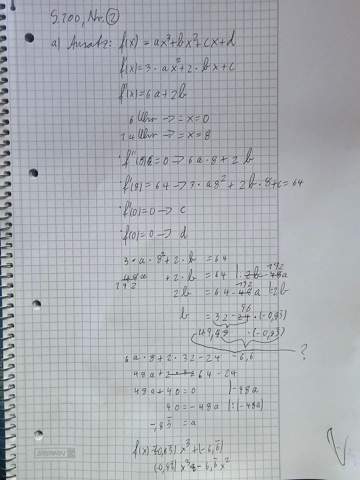 S.200, Nr. ②
a) Ansatz: f(x) = ax³+bx²+cx+d
f'(x)=3·ax²+2·bx+c
f''(x)=6a+2b
6 Uhr → = x=0
14 Uhr → = x=8
f''(8)=0 → 6a·8+2b
f'(8)=64 → 3·a8²+2b·8+c=64
f'(0)=0 → c
f(0)=0 → d
3·a·8²+2·b = 64
192 +2·b = 64 |-192a
2b = 64-192a |:2b
b = 32-96·(-0,83)
·(-0,83)
?
6a·8+2·32-24 -6,6
48a+2 64-24
48a+40=0 |-48a
40=-48a |:(-48a)
-,83=a
f(x)=(0,83)x³+(-6,6)
(0,83)x³-6,6x²